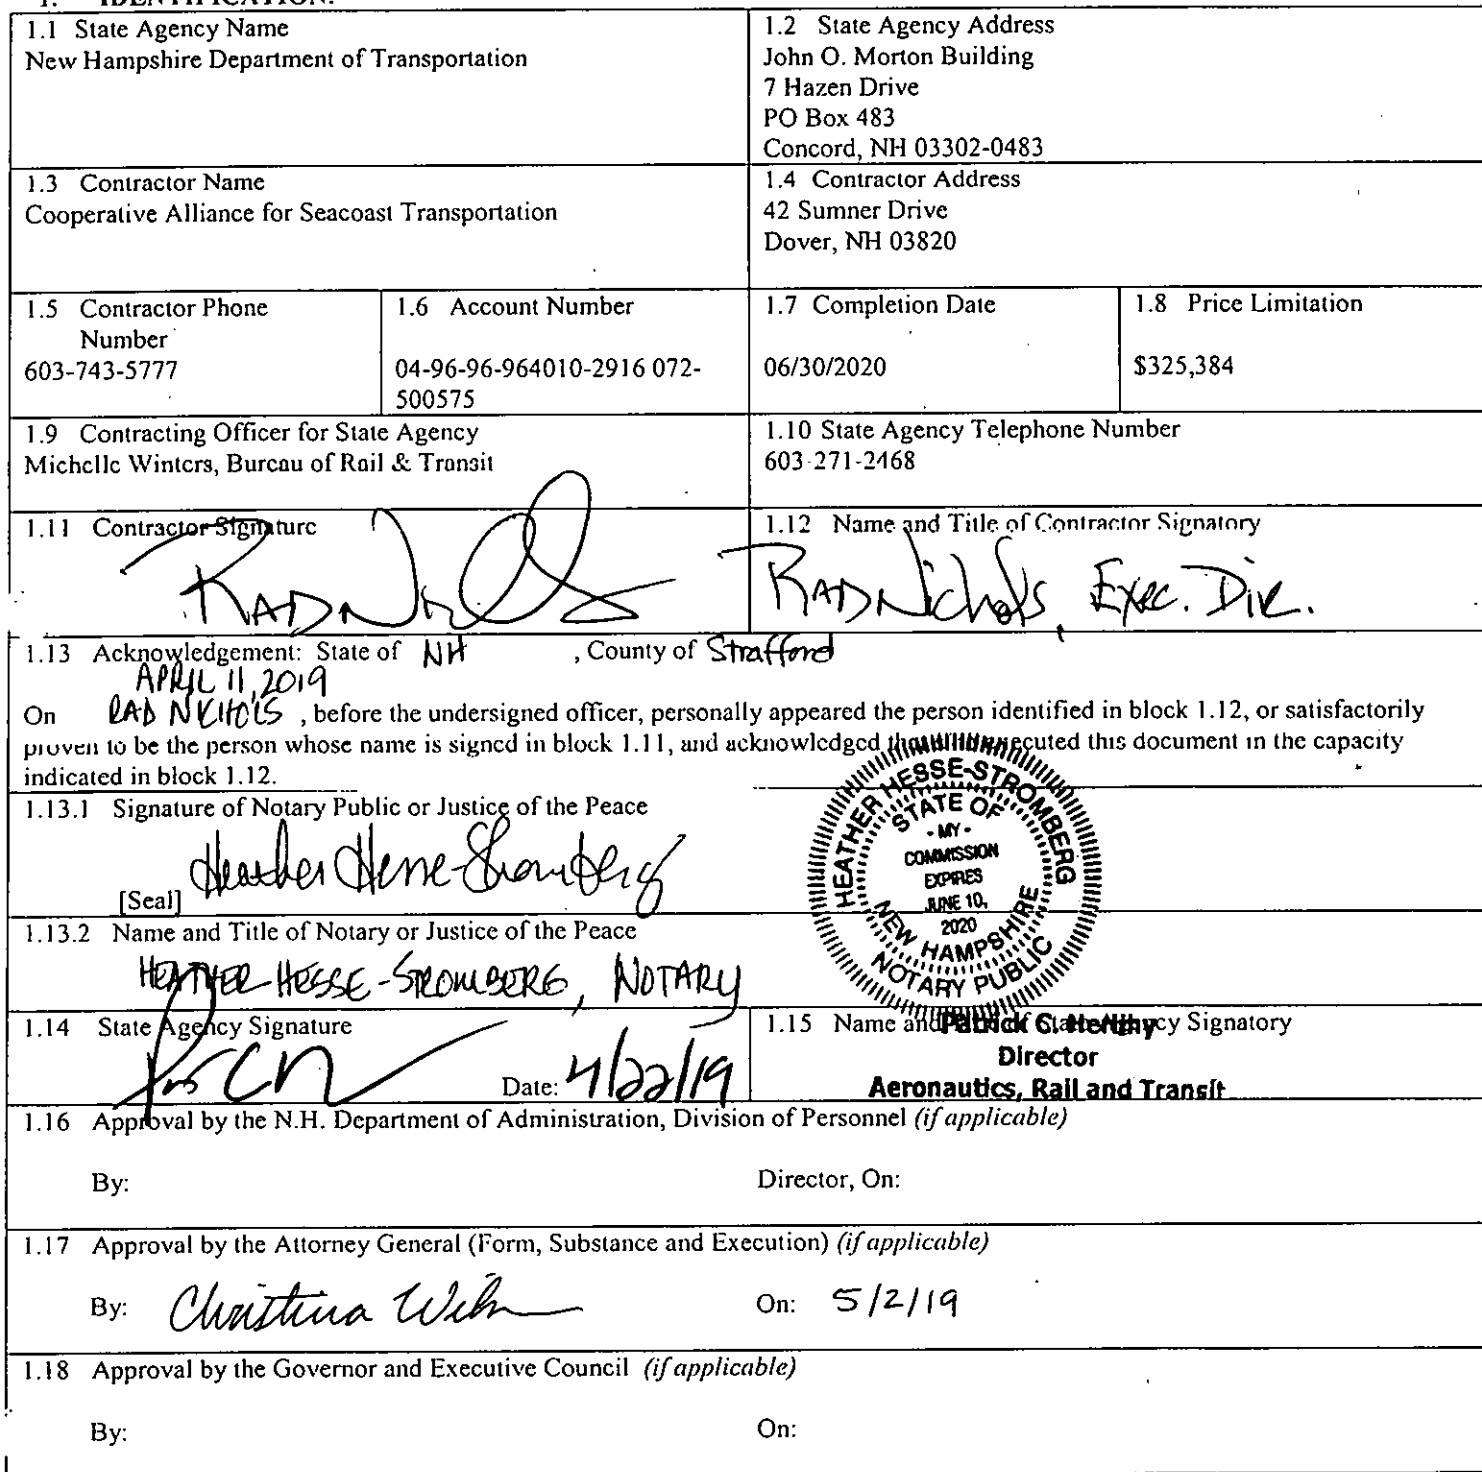 1. IDENTIFICATION.
1.1 State Agency Name
New Hampshire Department of Transportation
1.2 State Agency Address
John O. Morton Building
7 Hazen Drive
PO Box 483
Concord, NH 03302-0483
1.3 Contractor Name
Cooperative Alliance for Seacoast Transportation
1.4 Contractor Address
42 Sumner Drive
Dover, NH 03820
1.5 Contractor Phone
Number
603-743-5777
1.6 Account Number
04-96-96-964010-2916 072-
500575
1.7 Completion Date
06/30/2020
1.8 Price Limitation
$325,384
1.9 Contracting Officer for State Agency
Michelle Winters, Bureau of Rail & Transit
1.10 State Agency Telephone Number
603-271-2468
1.11 Contractor Signature
RAD Nichols
1.12 Name and Title of Contractor Signatory
RAD Nichols, Exec. Dir.
1.13 Acknowledgement: State of NH , County of Strafford
APRIL 11, 2019
On RAD NICHOLS , before the undersigned officer, personally appeared the person identified in block 1.12, or satisfactorily
proven to be the person whose name is signed in block 1.11, and acknowledged executed this document in the capacity
indicated in block 1.12.
1.13.1 Signature of Notary Public or Justice of the Peace
Heather Hesse-Stromberg
[Seal]
HEATHER HESSE-STROMBERG
STATE OF
- MY -
COMMISSION
EXPIRES
JUNE 10,
2020
NEW HAMPSHIRE
NOTARY PUBLIC
1.13.2 Name and Title of Notary or Justice of the Peace
HEATHER HESSE-STROMBERG, NOTARY
1.14 State Agency Signature
Date: 4/22/19
1.15 Name and Agency Signatory
Patrick C. Herlihy
Director
Aeronautics, Rail and Transit
1.16 Approval by the N.H. Department of Administration, Division of Personnel (if applicable)
By: Director, On:
1.17 Approval by the Attorney General (Form, Substance and Execution) (if applicable)
By: Christina On: 5/2/19
1.18 Approval by the Governor and Executive Council (if applicable)
By: On: